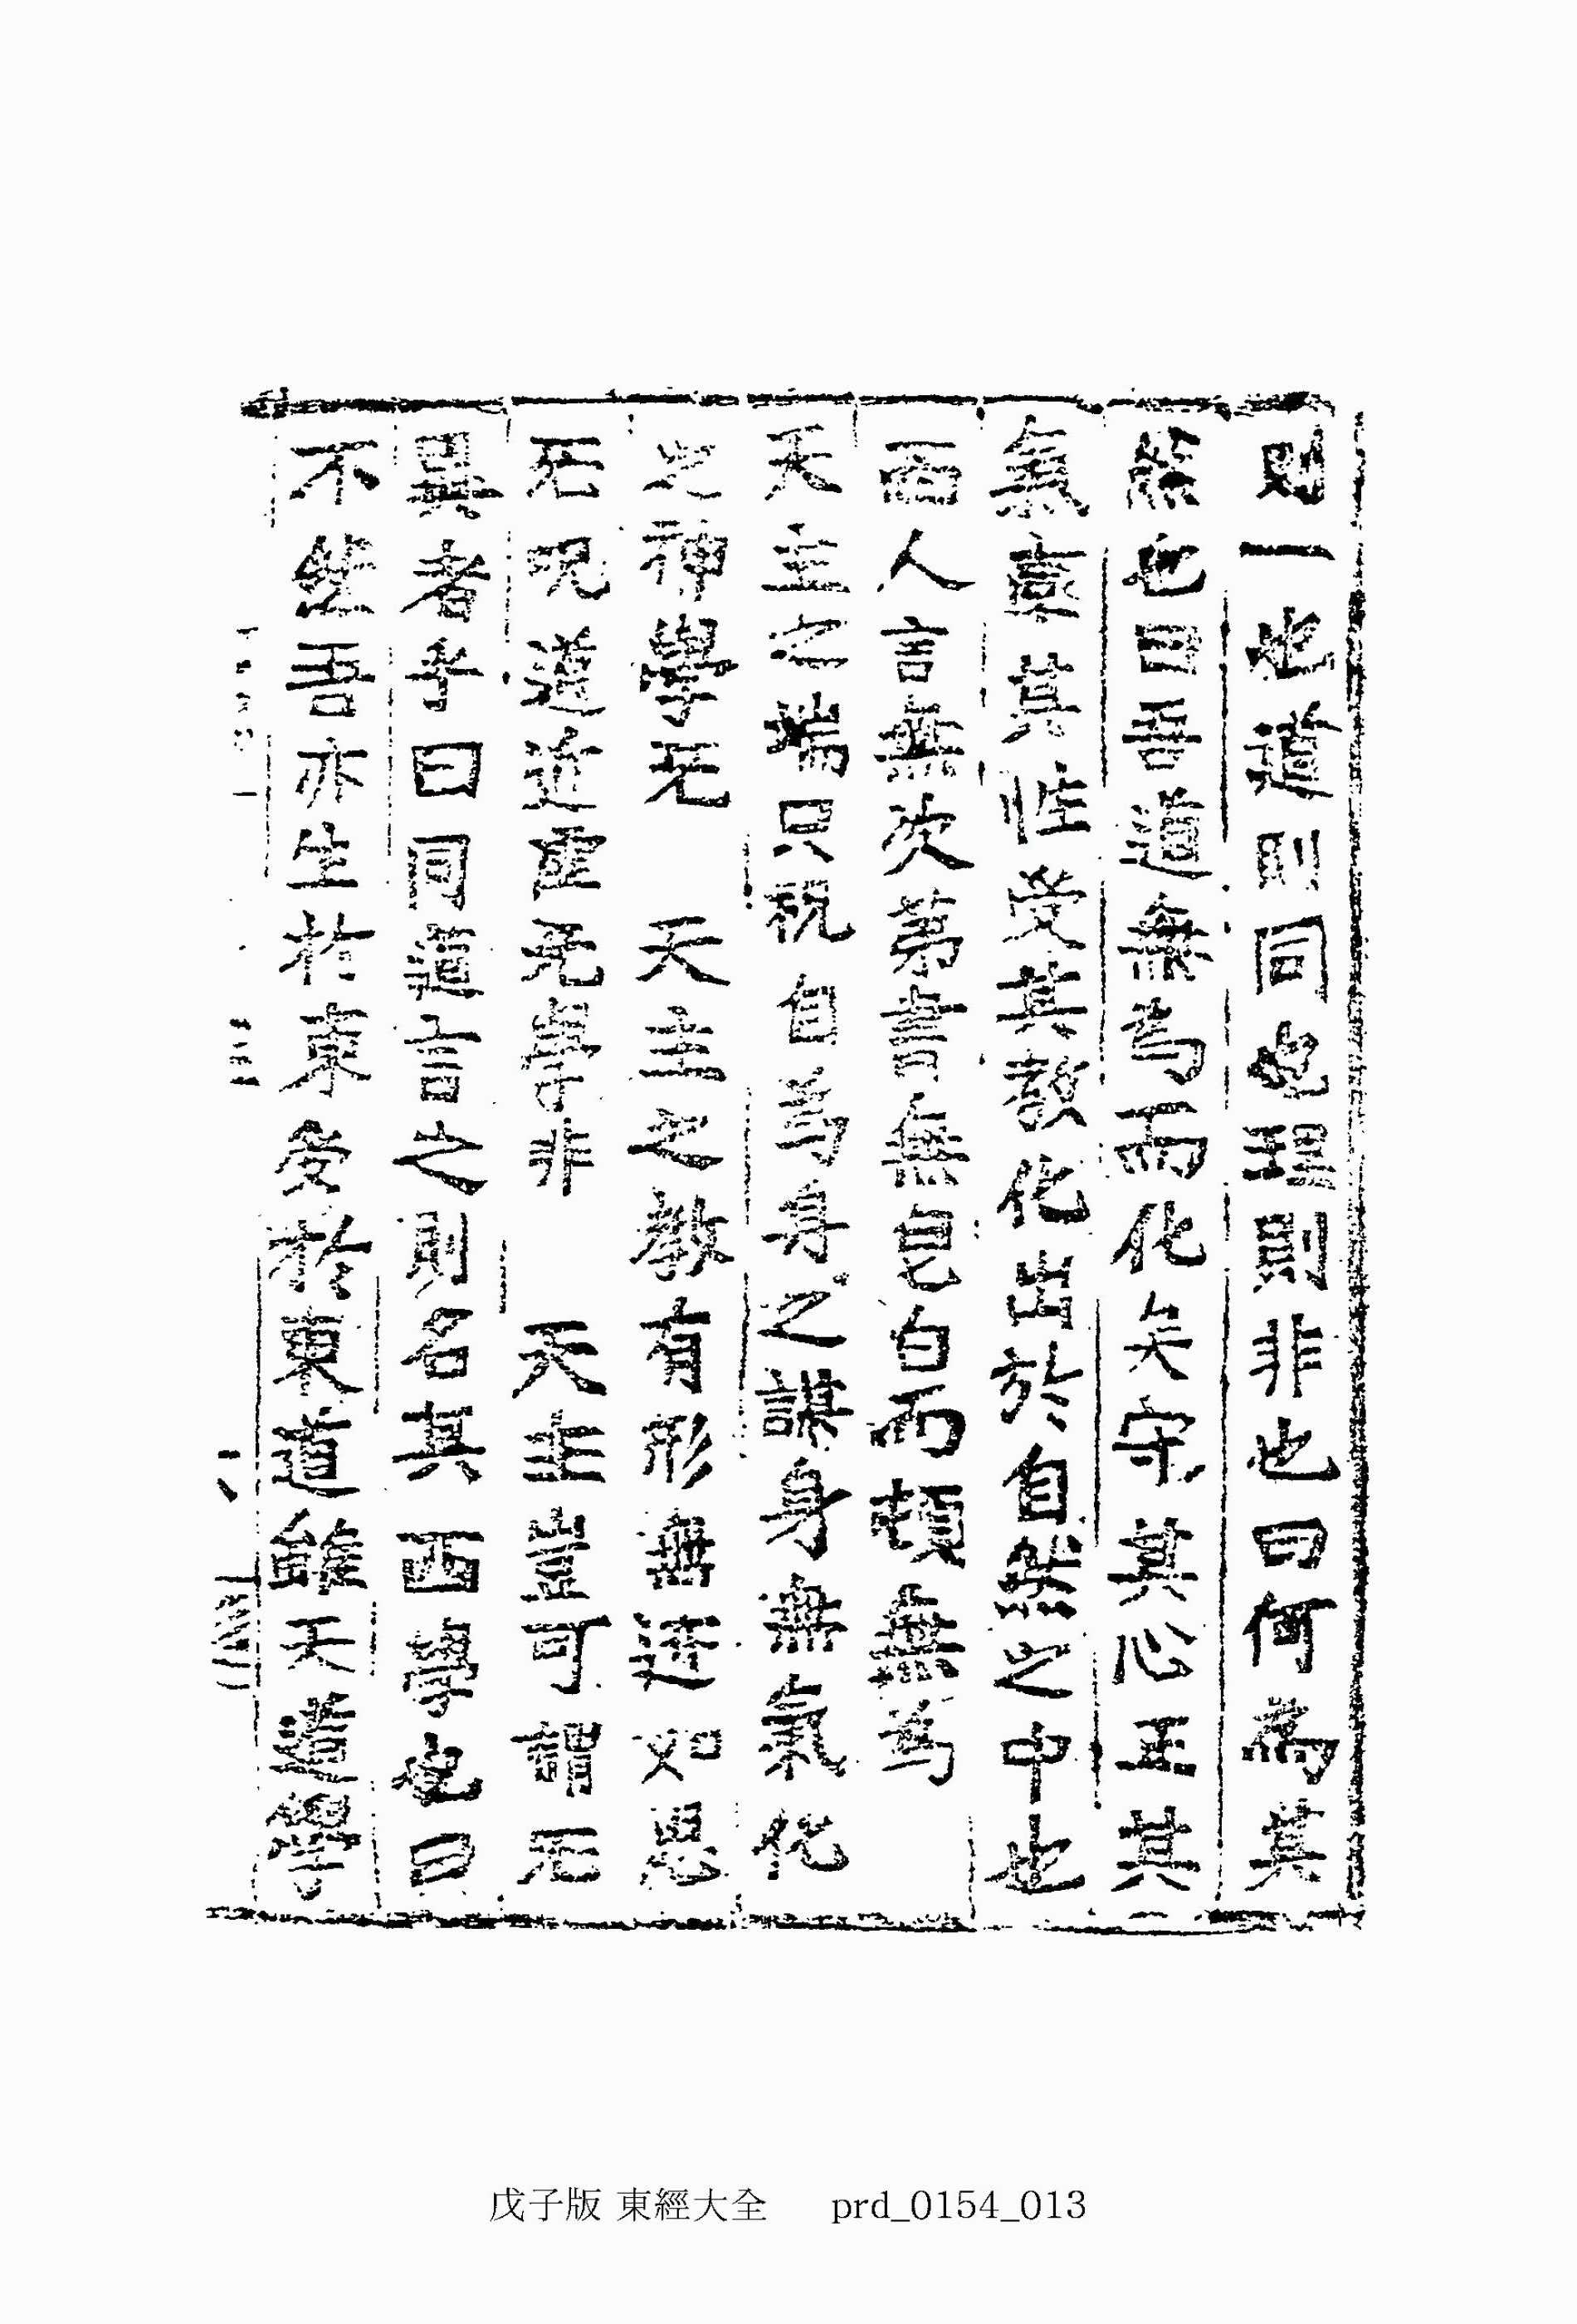 則一也道則同也理則非也曰何為其
然也曰吾道無為而化矣守其心正其
氣率其性受其教化出於自然之中也
西人言無次第書無皂白而頓無為
天主之端只祝自為身之謀身無氣化
之神學无　天主之教有形無迹如思
无呪道近虛无學非　天主豈可謂无
異者乎曰同道言之則名其西學也曰
不然吾亦生於東受於東道雖天道學
戊子版 東經大全　prd_0154_013